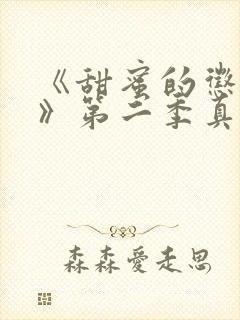 《甜蜜的惩
》第二季真
森森爱走思